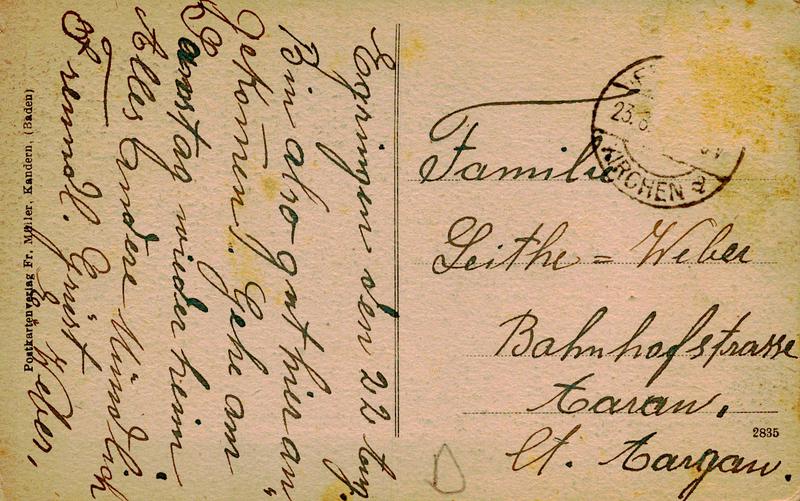 Egringen den 22 Aug.
Bin also gut hier an=
gekom̄en. Gehe am
Samstag wieder heim
Alles Andere Mündlich
Freundl. Grüsst Weber,
Postkartenverlag Fr. Müller, Kandern, (Baden)
23.8.
KIRCHEN
Familie
Leithe = Weber
Bahnhofstrasse
Aarau,
Ct. Aargau.
2835
D